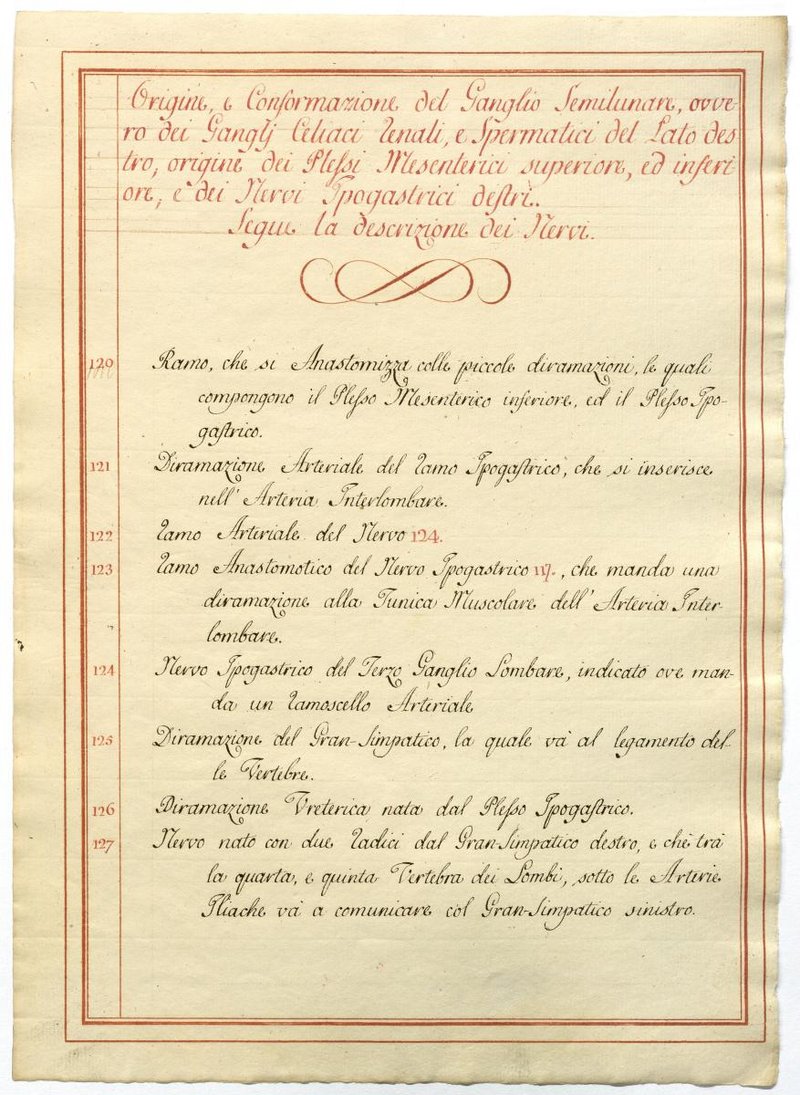 Origine, e Conformazione del Ganglio Semilunare, ovve-
ro dei Ganglj Celiaci Renali, e Spermatici del Lato des-
tro, origine dei Plessi Mesenterici superiore, ed inferi-
ore, e dei Nervi Ipogastrici destri.
Segue la descrizione dei Nervi.
120 Ramo, che si Anastomizza colle piccole diramazioni, le quali
compongono il Plesso Mesenterico inferiore, ed il Plesso Ipo-
gastrico.
121 Diramazione Arteriale del Ramo Ipogastrico, che si inserisce
nell' Arteria Interlombare.
122 Ramo Arteriale del Nervo 124.
123 Ramo Anastomotico del Nervo Ipogastrico 117., che manda una
diramazione alla Tunica Muscolare dell' Arteria Inter-
lombare.
124 Nervo Ipogastrico del Terzo Ganglio Lombare, indicato ove man-
da un Ramoscello Arteriale
125 Diramazione del Gran-Simpatico, la quale và al legamento del-
le Vertebre.
126 Diramazione Vreterica nata dal Plesso Ipogastrico.
127 Nervo nato con due Radici dal Gran-Simpatico destro, e che trà
la quarta, e quinta Vertebra dei Lombi, sotto le Arterie
Iliache và a comunicare col Gran-Simpatico sinistro.